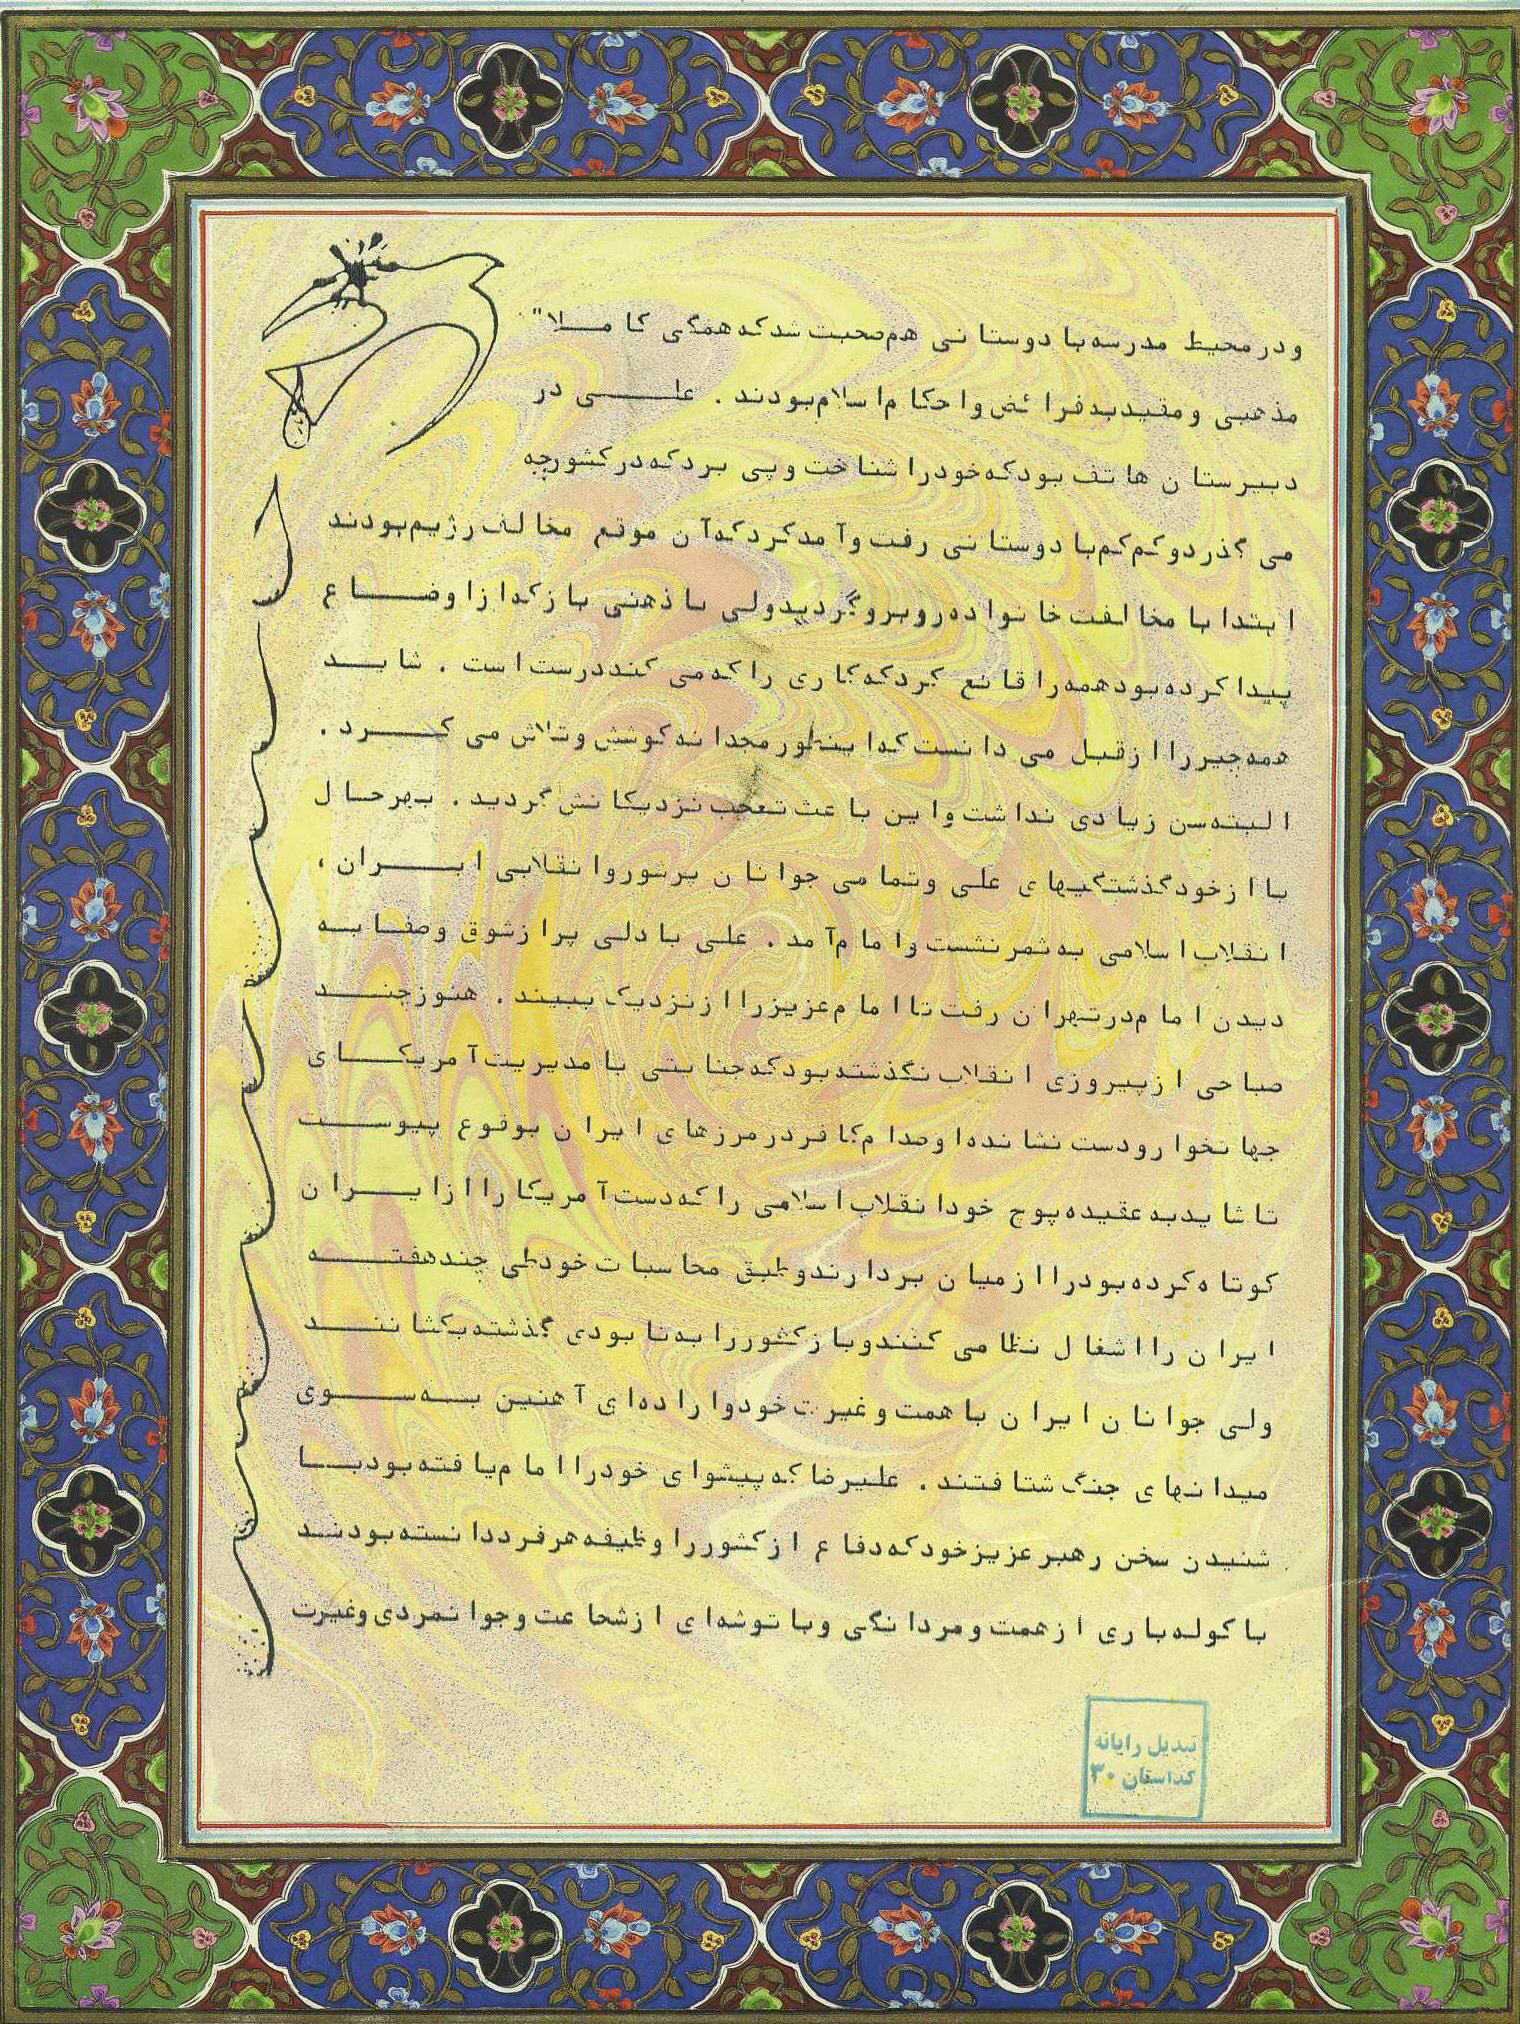 و در محیط مدرسه با دوستانی هم‌صحبت شد که همگی کاملا"
مذهبی و مقید به فرائض و احکام اسلام بودند . علی در
دبیرستان هاتف بود که خود را شناخت و پی برد که در کشور چه
می گذرد و کم کم با دوستانی رفت و آمد کرد که آن موقع مخالف رژیم بودند
ابتدا با مخالفت خانواده روبرو گردید ولی با ذهنی باز که از اوضاع
پیدا کرده بود همه را قانع کرد که کاری را که می کند درست است . شاید
همه چیز را از قبل می دانست که اینطور مجدانه کوشش و تلاش می کرد .
البته سن زیادی نداشت و این باعث تعجب نزدیکانش گردید . بهر حال
با از خود گذشتگیهای علی و تمامی جوانان پرشور و انقلابی ایران ،
انقلاب اسلامی به ثمر نشست و امام آمد . علی با دلی پر از شوق و صفا به
دیدن امام در تهران رفت تا امام عزیز را از نزدیک ببیند . هنوز چند
صباحی از پیروزی انقلاب نگذشته بود که جنایتی با مدیریت آمریکای
جهانخوار و دست نشانده او صدام کافر در مرزهای ایران بوقوع پیوست
تا شاید به عقیده پوچ خود انقلاب اسلامی را که دست آمریکا را از ایران
کوتاه کرده بود را از میان بردارند و طبق محاسبات خود طی چند هفته
ایران را اشغال نظامی کنند و باز کشور را به نابودی گذشته بکشانند
ولی جوانان ایران با همت و غیرت خود و اراده‌ای آهنین به سوی
میدانهای جنگ شتافتند . علیرضا که پیشوای خود را امام یافته بود با
شنیدن سخن رهبر عزیز خود که دفاع از کشور را وظیفه هر فرد دانسته بودند
با کوله باری از همت و مردانگی و با توشه‌ای از شجاعت و جوانمردی و غیرت
تبدیل رایانه
کداستان ۳۰